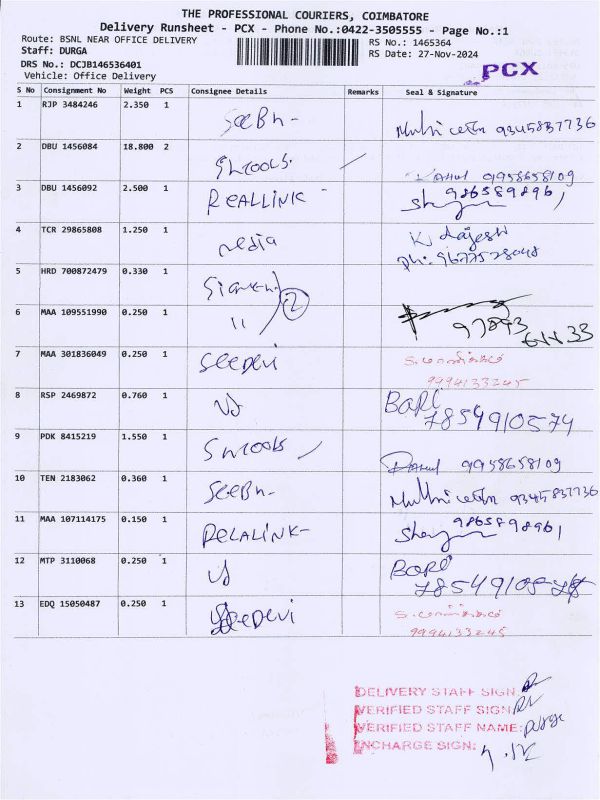 THE PROFESSIONAL COURIERS, COIMBATORE
Delivery Runsheet - PCX - Phone No.:0422-3505555 - Page No.:1
Route: BSNL NEAR OFFICE DELIVERY RS No.: 1465364
Staff: DURGA RS Date: 27-Nov-2024
DRS No.: DCJB146536401
Vehicle: Office Delivery
PCX
S No Consignment No Weight PCS Consignee Details Remarks Seal & Signature
1 RJP 3484246 2.350 1 SeeBn- 9345837736
2 DBU 1456084 18.800 2 Rahul 9958658109
3 DBU 1456092 2.500 1 REALLINK - 9865898961
4 TCR 29865808 1.250 1 media K. Rajesh
Ph: 9677528048
5 HRD 700872479 0.330 1
6 MAA 109551990 0.250 1 11 2 97893
7 MAA 301836049 0.250 1 SEEDEVI
9994133245
8 RSP 2469872 0.760 1 BARI
7854910574
9 PDK 8415219 1.550 1 Rahul 9958658109
10 TEN 2183062 0.360 1 SeeBn- 9345837736
11 MAA 107114175 0.150 1 RELALINK- 9865898961
12 MTP 3110068 0.250 1 BARI
13 EDQ 15050487 0.250 1 SEEDEVI
9994133245
DELIVERY STAFF SIGN
VERIFIED STAFF SIGN
VERIFIED STAFF NAME: Durga
INCHARGE SIGN: